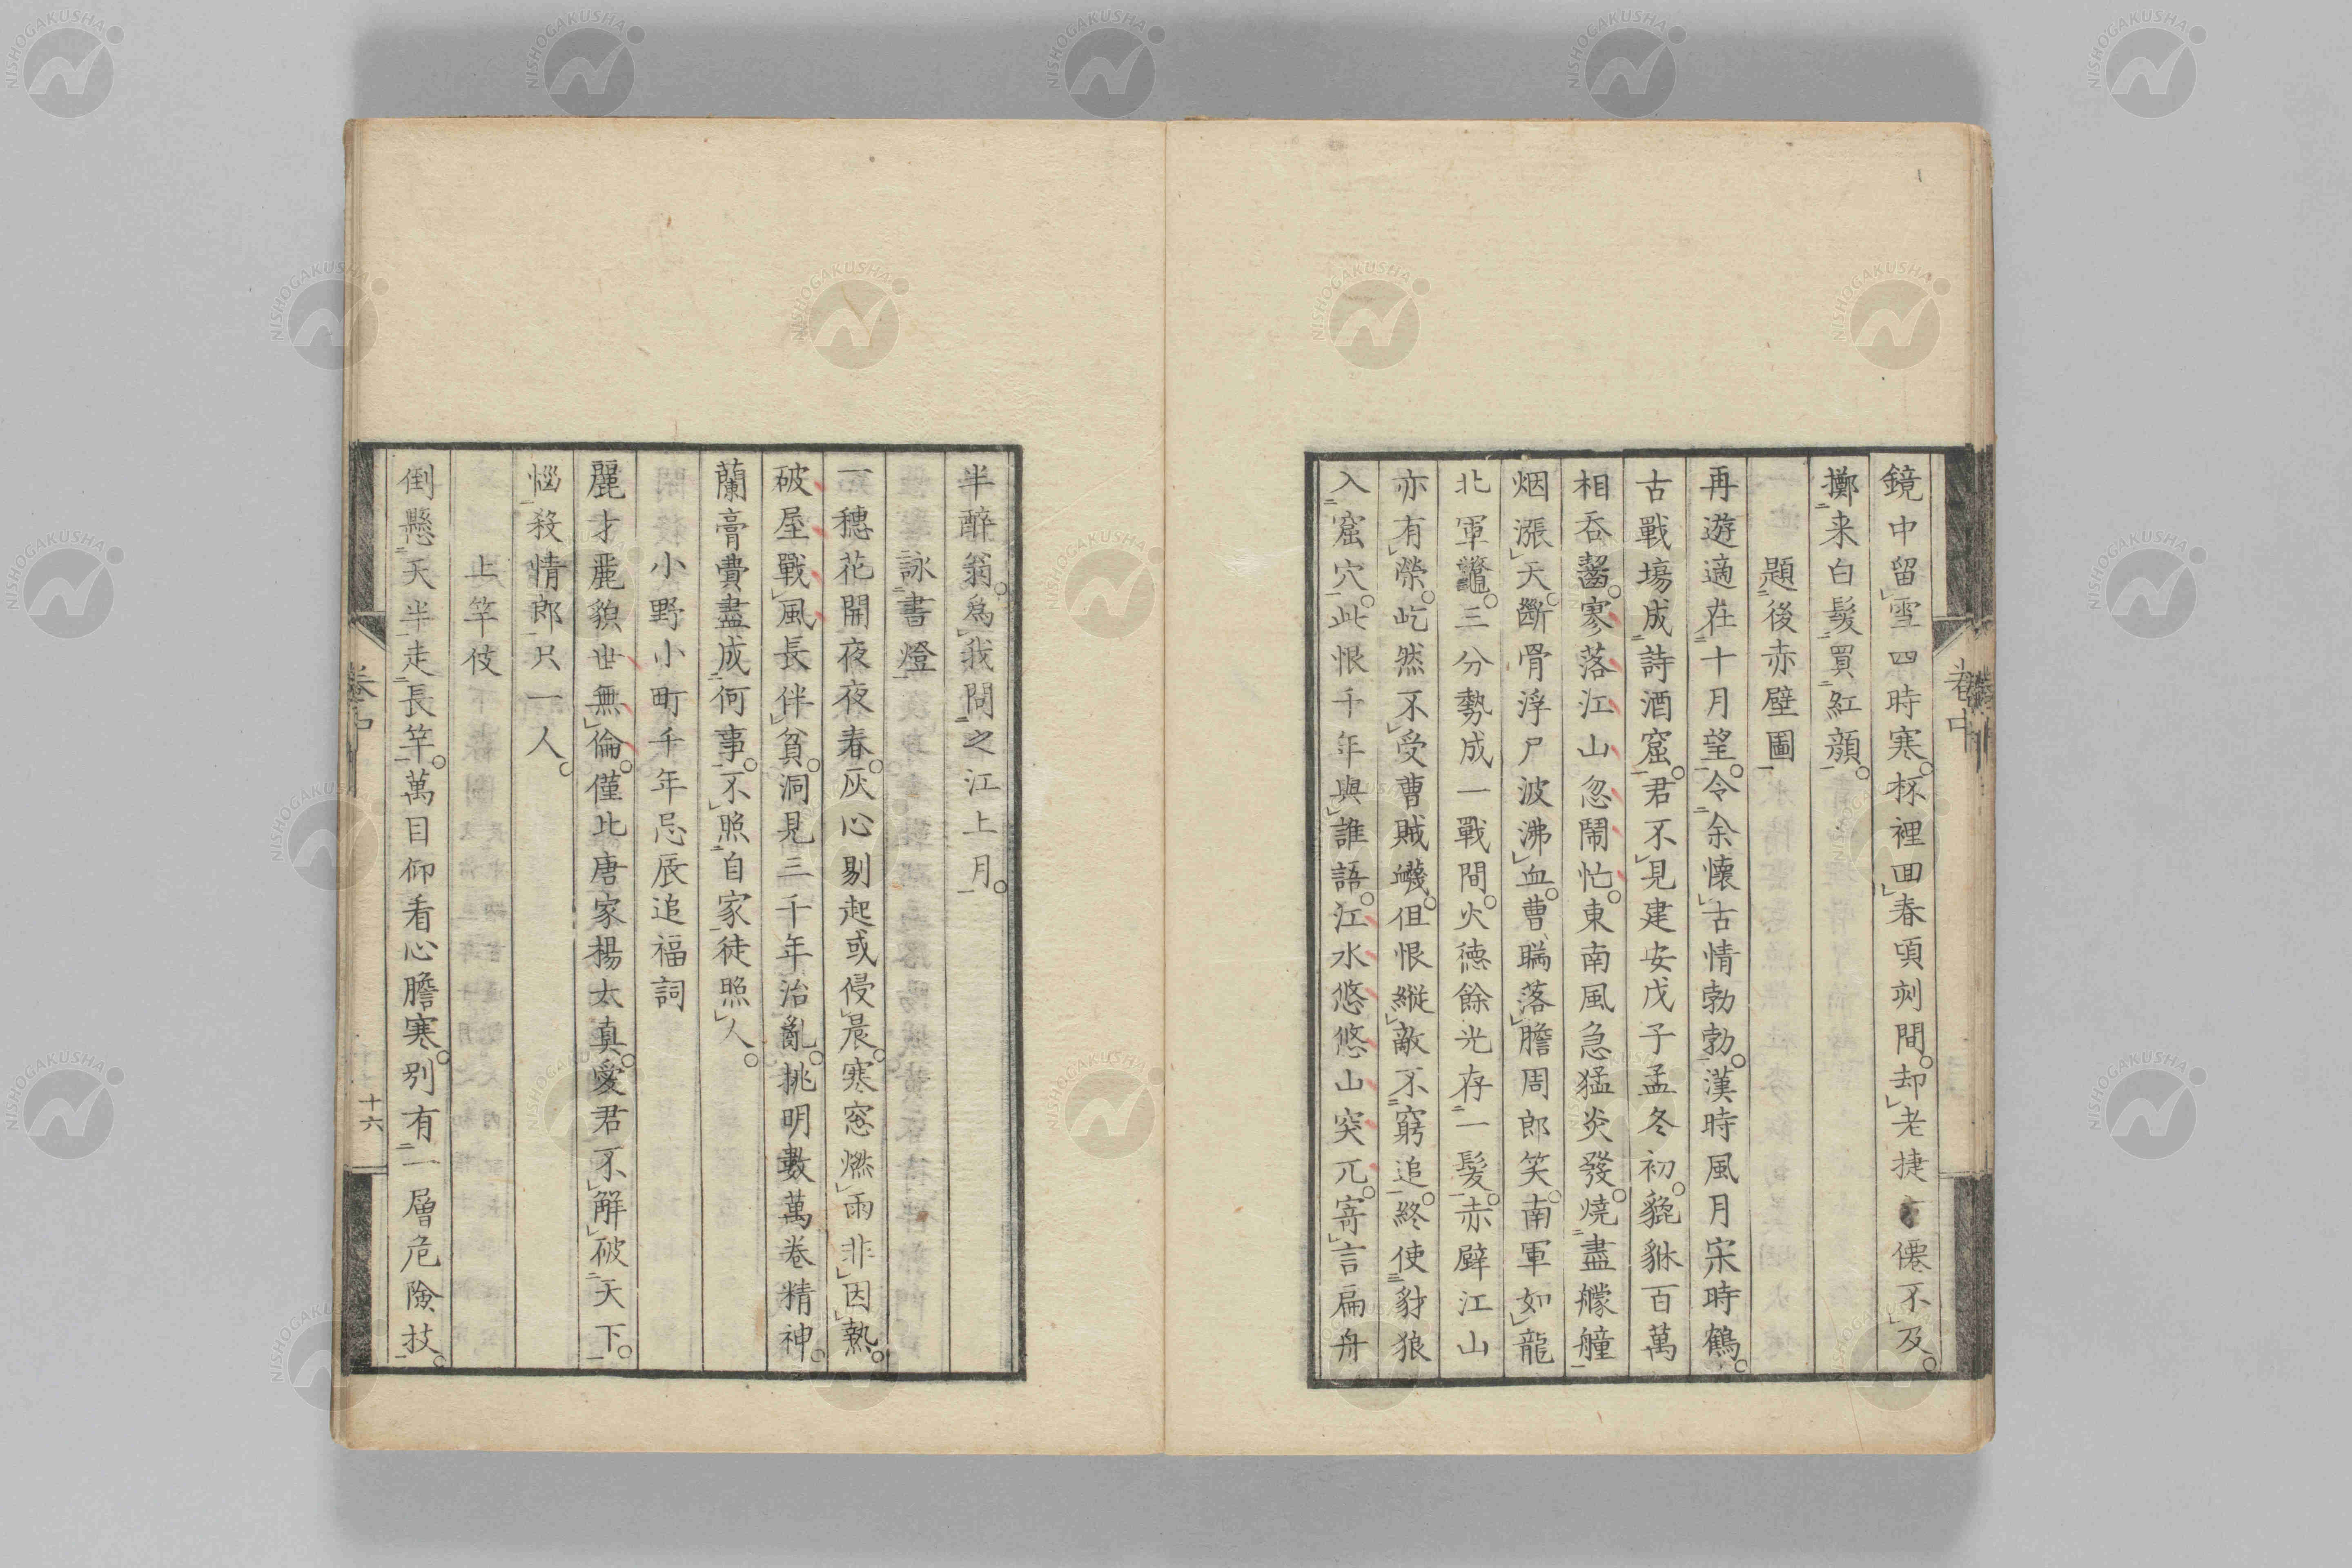 鏡中留雪四時寒杯裡回春頃刻間却老捷僊不及
擲来白髮買紅顔
題後赤壁圖
再遊適在十月望令余懷古情勃勃漢時風月宋時鶴
古戰場成詩酒窟君不見建安戊子孟冬初貔貅百萬
相吞齧寥落江山忽鬧忙東南風急猛炎發燒盡艨艟
烟漲天斷骨浮尸波沸血曹瞞落膽周郎笑南軍如龍
北軍鼈三分勢成一戰間火德餘光存一髮赤壁江山
亦有榮屹然不受曹賊衊但恨縦敵不窮追終使豺狼
入窟穴此恨千年與誰語江水悠悠山突兀寄言扁舟
卷中
半醉翁爲我問之江上月
詠書燈
一穗花開夜夜春灰心剔起或侵晨寒窓燃雨非因熱
破屋戰風長伴貧洞見三千年治亂挑明數萬卷精神
蘭膏費盡成何事不照自家徒照人
小野小町千年忌辰追福詞
麗才麗貌世無倫僅比唐家楊太真愛君不解破天下
惱殺情郎只一人
上竿伎
倒懸天半走長竿萬目仰看心膽寒別有一層危険技
卷中
十六
NISHOGAKUSHA